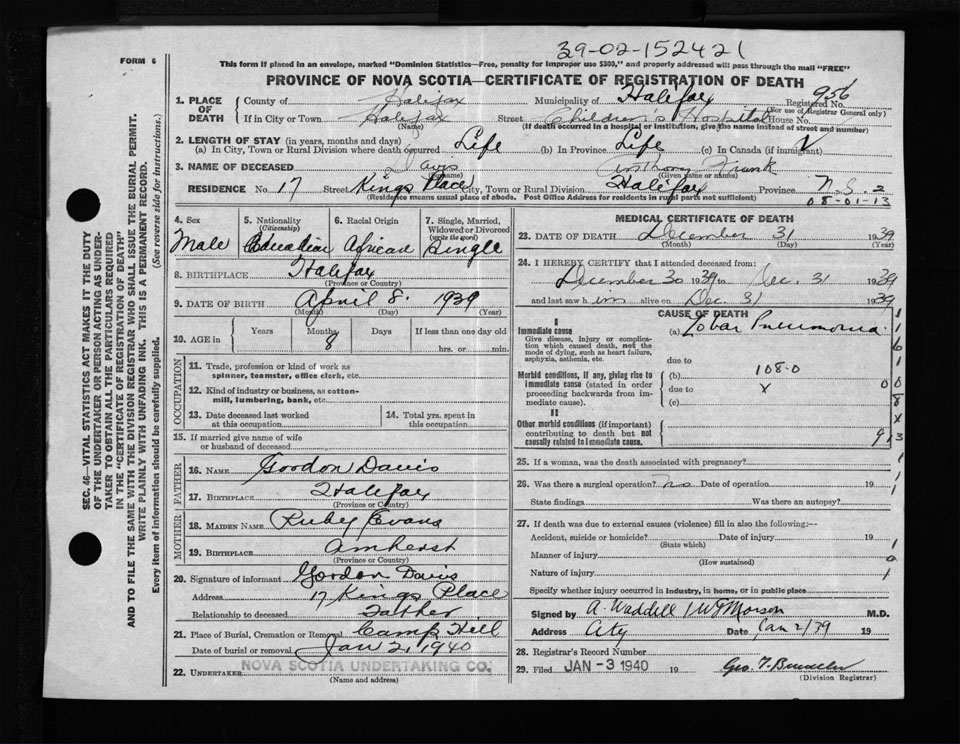 39-02-152421
FORM 6
This form if placed in an envelope, marked "Dominion Statistics—Free, penalty for improper use $300," and properly addressed will pass through the mail "FREE"
PROVINCE OF NOVA SCOTIA—CERTIFICATE OF REGISTRATION OF DEATH
956
1. PLACE OF DEATH County of Halifax Municipality of Halifax Registered No.
(For use of Registrar General only)
If in City or Town Halifax Street Children's Hospital House No.
(Name) (If death occurred in a hospital or institution, give the name instead of street and number)
2. LENGTH OF STAY (in years, months and days)
(a) In City, Town or Rural Division where death occurred Life (b) In Province Life (c) In Canada (if immigrant)
3. NAME OF DECEASED Davis Anthony Frank
(Surname) (Given name or names)
RESIDENCE No. 17 Street Kings Place City, Town or Rural Division Halifax Province N.S. 2
(Residence means usual place of abode. Post Office Address for residents in rural parts not sufficient) 08-01-13
4. Sex Male
5. Nationality (Citizenship) Canadian
6. Racial Origin African
7. Single, Married, Widowed or Divorced (write the word) Single
8. BIRTHPLACE Halifax
(Province or Country)
9. DATE OF BIRTH April 8 1939
(Month) (Day) (Year)
10. AGE in Years Months Days If less than one day old
8 hrs. or min.
OCCUPATION
11. Trade, profession or kind of work as spinner, teamster, office clerk, etc.
12. Kind of industry or business, as cotton-mill, lumbering, bank, etc.
13. Date deceased last worked at this occupation
14. Total yrs. spent in this occupation
15. If married give name of wife or husband of deceased
FATHER
16. NAME Gordon Davis
17. BIRTHPLACE Halifax
(Province or Country)
MOTHER
18. MAIDEN NAME Ruby Evans
19. BIRTHPLACE Amherst
(Province or Country)
20. Signature of informant Gordon Davis
Address 17 Kings Place
Relationship to deceased Father
21. Place of Burial, Cremation or Removal Camp Hill
Date of burial or removal Jan 2, 1940
22. UNDERTAKER NOVA SCOTIA UNDERTAKING CO.
(Name and address)
MEDICAL CERTIFICATE OF DEATH
23. DATE OF DEATH December 31 1939
(Month) (Day) (Year)
24. I HEREBY CERTIFY that I attended deceased from:
December 30 1939 to Dec. 31 1939
and last saw him alive on Dec 31 1939
CAUSE OF DEATH
I
Immediate cause (a) Lobar Pneumonia
Give disease, injury or complication which caused death, not the mode of dying, such as heart failure, asphyxia, asthenia, etc.
due to
108-0
Morbid conditions, if any, giving rise to immediate cause (stated in order proceeding backwards from immediate cause). (b)
due to x
(c)
II
Other morbid conditions (if important) contributing to death but not causally related to immediate cause.
25. If a woman, was the death associated with pregnancy?
26. Was there a surgical operation? No Date of operation 19
State findings Was there an autopsy?
27. If death was due to external causes (violence) fill in also the following:—
Accident, suicide or homicide? Date of injury 19
(State which)
Manner of injury
(How sustained)
Nature of injury
Specify whether injury occurred in industry, in home, or in public place
Signed by A. Waddell M.D.
Address City Date Jan 2/39 19
28. Registrar's Record Number
29. Filed JAN - 3 1940 19
(Division Registrar)
SEC. 46—VITAL STATISTICS ACT MAKES IT THE DUTY
OF THE UNDERTAKER OR PERSON ACTING AS UNDER-
TAKER TO OBTAIN ALL THE PARTICULARS REQUIRED
IN THE "CERTIFICATE OF REGISTRATION OF DEATH"
AND TO FILE THE SAME WITH THE DIVISION REGISTRAR WHO SHALL ISSUE THE BURIAL PERMIT.
WRITE PLAINLY WITH UNFADING INK. THIS IS A PERMANENT RECORD.
Every item of information should be carefully supplied. (See reverse side for instructions.)